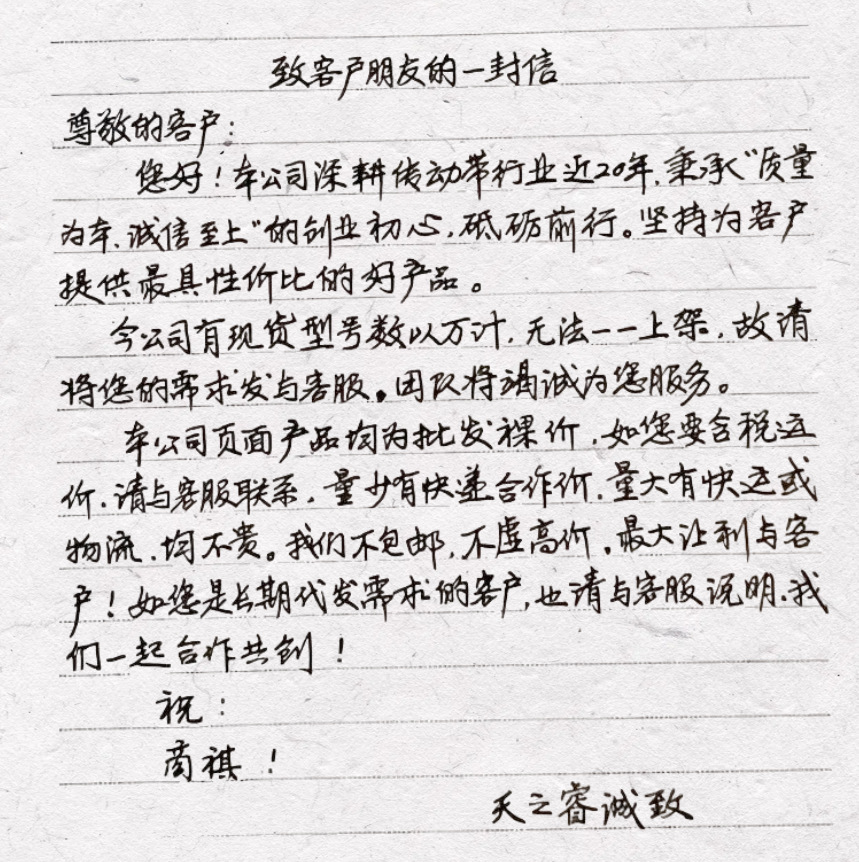 致客户朋友的一封信
尊敬的客户：
您好！本公司深耕传动带行业近20年，秉承“质量
为本，诚信至上”的创业初心，砥砺前行。坚持为客户
提供最具性价比的好产品。
今公司有现货型号数以万计，无法一一上架，故请
将您的需求发与客服。团队将竭诚为您服务。
本公司页面产品均为批发裸价，如您要含税运
价，请与客服联系，量少有快递合作价，量大有快运或
物流，均不贵。我们不包邮，不虚高价，最大让利与客
户！如您是长期代发需求的客户，也请与客服说明，我
们一起合作共创！
祝：
商祺！
天之睿诚致